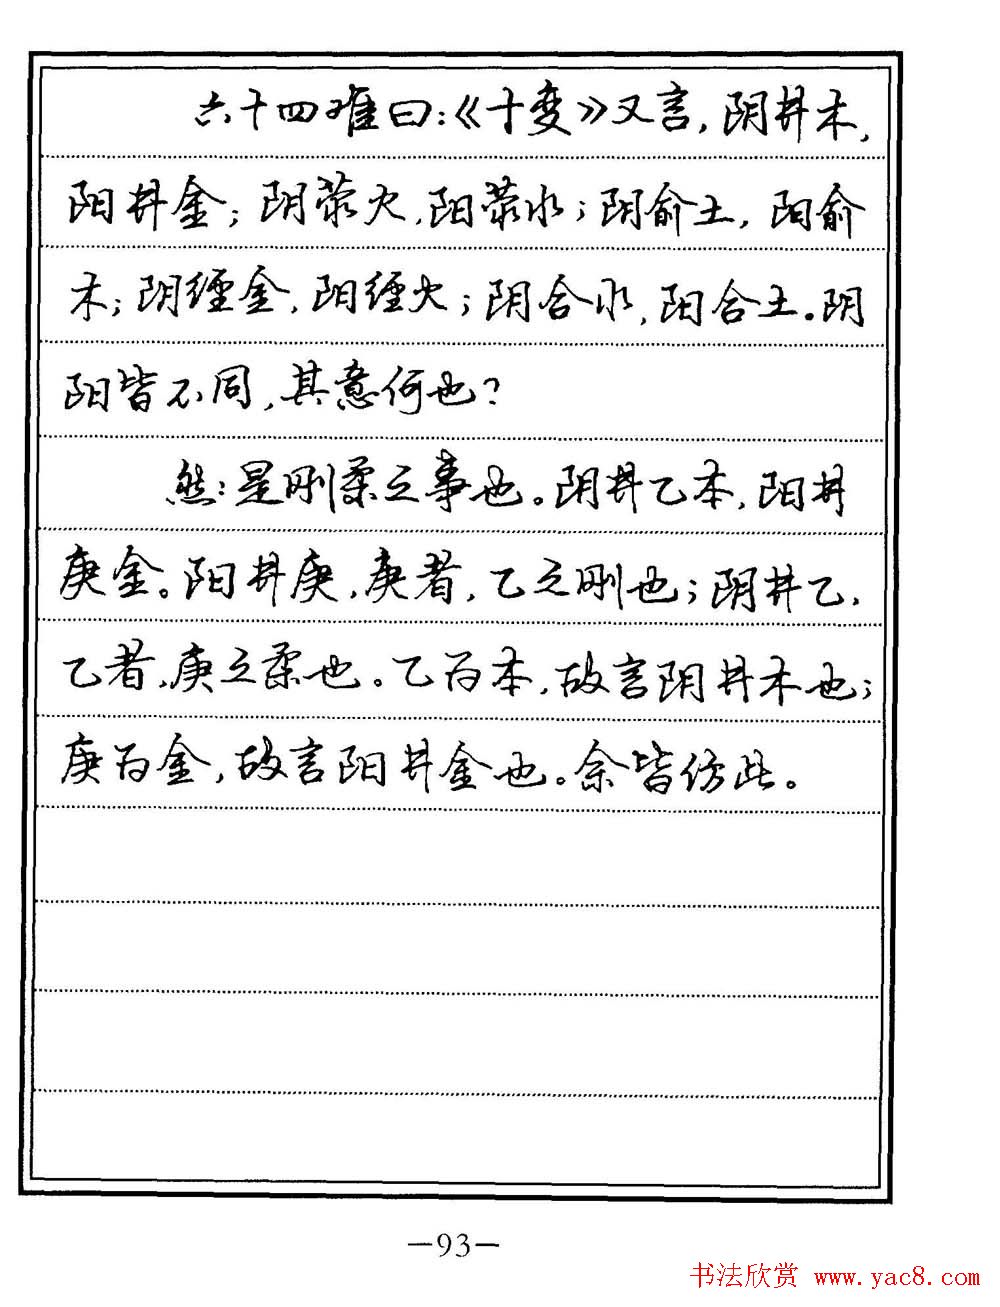 六十四难曰：《十变》又言，阴井木，
阳井金；阴荥火，阳荥水；阴俞土，阳俞
木；阴经金，阳经火；阴合水，阳合土。阴
阳皆不同，其意何也？
然：是刚柔之事也。阴井乙本，阳井
庚金。阳井庚，庚者，乙之刚也；阴井乙，
乙者，庚之柔也。乙为本，故言阴井木也；
庚为金，故言阳井金也。余皆仿此。
—93—
书法欣赏 www.yac8.com